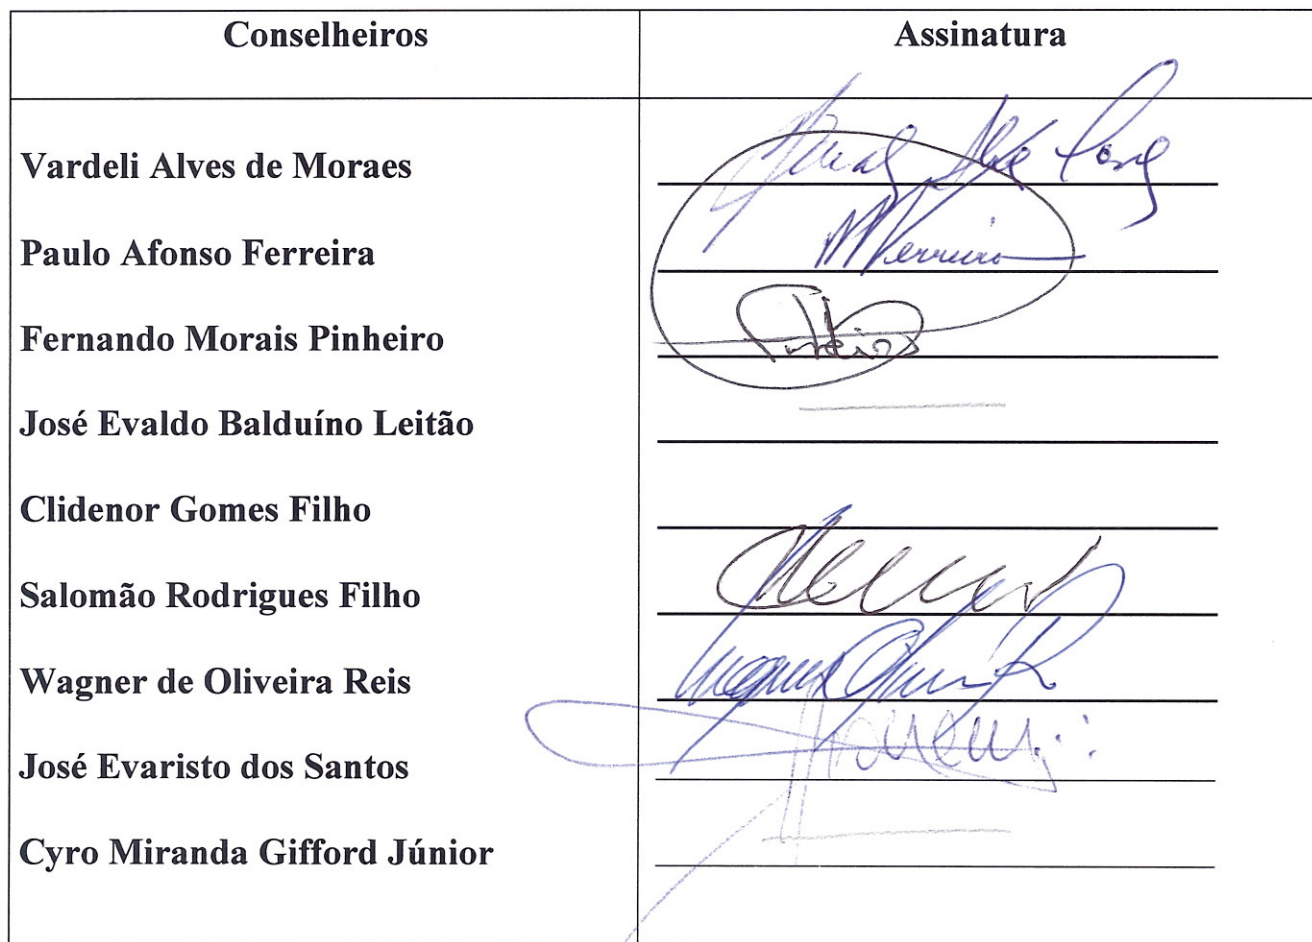 Conselheiros Assinatura
Vardeli Alves de Moraes
Paulo Afonso Ferreira
Fernando Morais Pinheiro
José Evaldo Balduíno Leitão
Clidenor Gomes Filho
Salomão Rodrigues Filho
Wagner de Oliveira Reis
José Evaristo dos Santos
Cyro Miranda Gifford Júnior